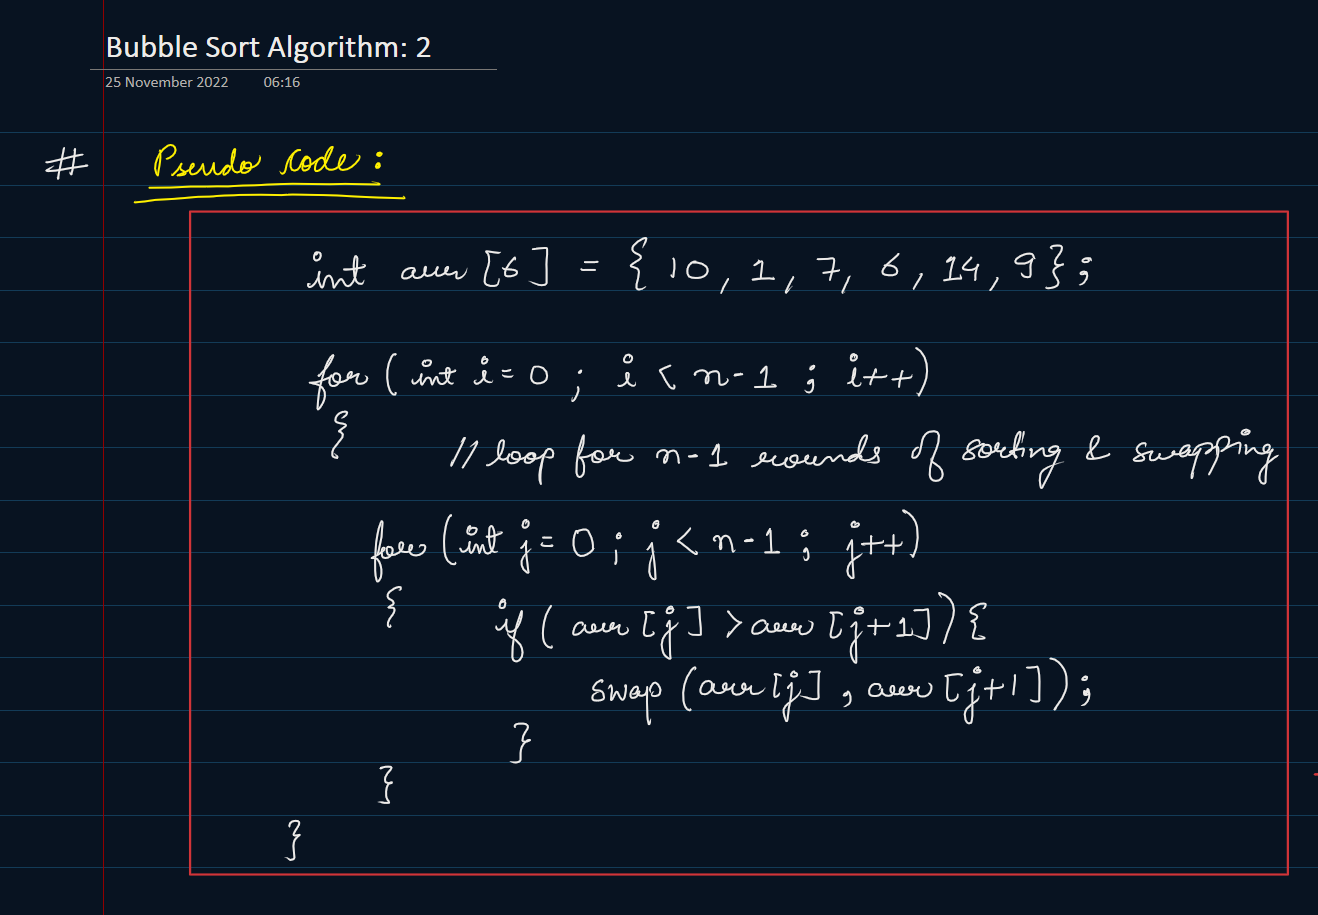 Bubble Sort Algorithm: 2
25 November 2022 06:16
# Pseudo code :
int arr [6] = { 10, 1, 7, 6, 14, 9};
for ( int i = 0 ; i < n-1 ; i++)
{ // loop for n-1 rounds of sorting & swapping
for (int j = 0 ; j < n-1 ; j++)
{ if ( arr [j] > arr [j+1]) {
swap (arr [j] , arr [j+1]);
}
}
}